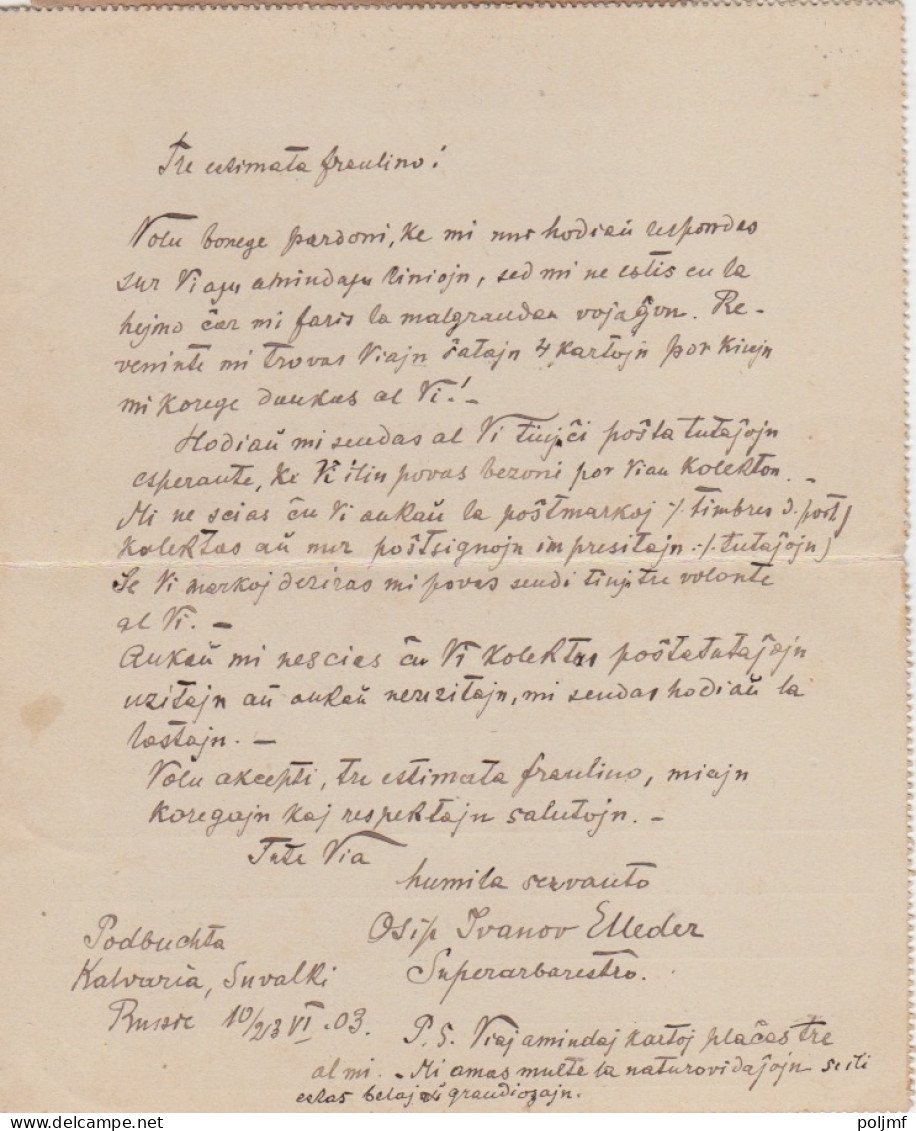 Tre estimata fraulino!
Volu bonege pardoni, ke mi nur hodiaŭ respondas
sur Viajn amindajn liniojn, sed mi ne estis en la
hejmo ĉar mi faris la malgrandan vojaĝon. Re-
veninte mi trovas Viajn ŝatajn 4 kartojn por kiujn
mi korege dankas al Vi! –
Hodiaŭ mi sendas al Vi poŝta tutaĵojn
esperante, ke Vi ilin povas bezoni por Vian kolekton. –
Mi ne scias ĉu Vi ankaŭ la poŝtmarkoj ·/. timbres d. post)
kolektas aŭ nur poŝtsignojn impresitajn ·/. tutaĵojn)
Se Vi markoj deziras mi povas sendi tre volonte
al Vi. –
Ankaŭ mi nescias ĉu Vi kolektas poŝtatutaĵojn
uzitajn aŭ ankaŭ neuzitajn, mi sendas hodiaŭ la
lastajn. –
Volu akcepti, tre estimata fraulino, miajn
koregajn kaj respektajn salutojn. –
Tute Via
humila servanto
Osip Ivanov Elleder
Superarbarestro.
Podbuchta
Kalvaria, Suvalki
Russie 10/23 VI .03.
P.S. Viaj amindaj kartoj plaĉas tre
al mi. – Mi amas multe la naturovidaĵojn se ili
estas belaj grandiozajn.
poljmf
delcampe.net